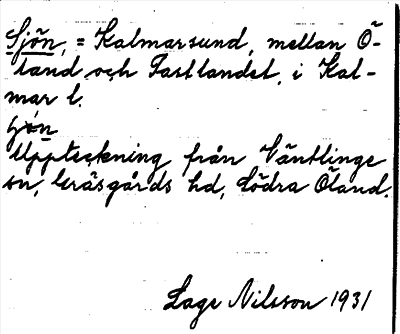 Sjön, = Kalmarsund, mellan Ö-
land och Fastlandet, i Kal-
mar l.
Uppteckning från Ventlinge
sn, Gräsgårds hd, södra Öland.
Lage Nilsson 1931